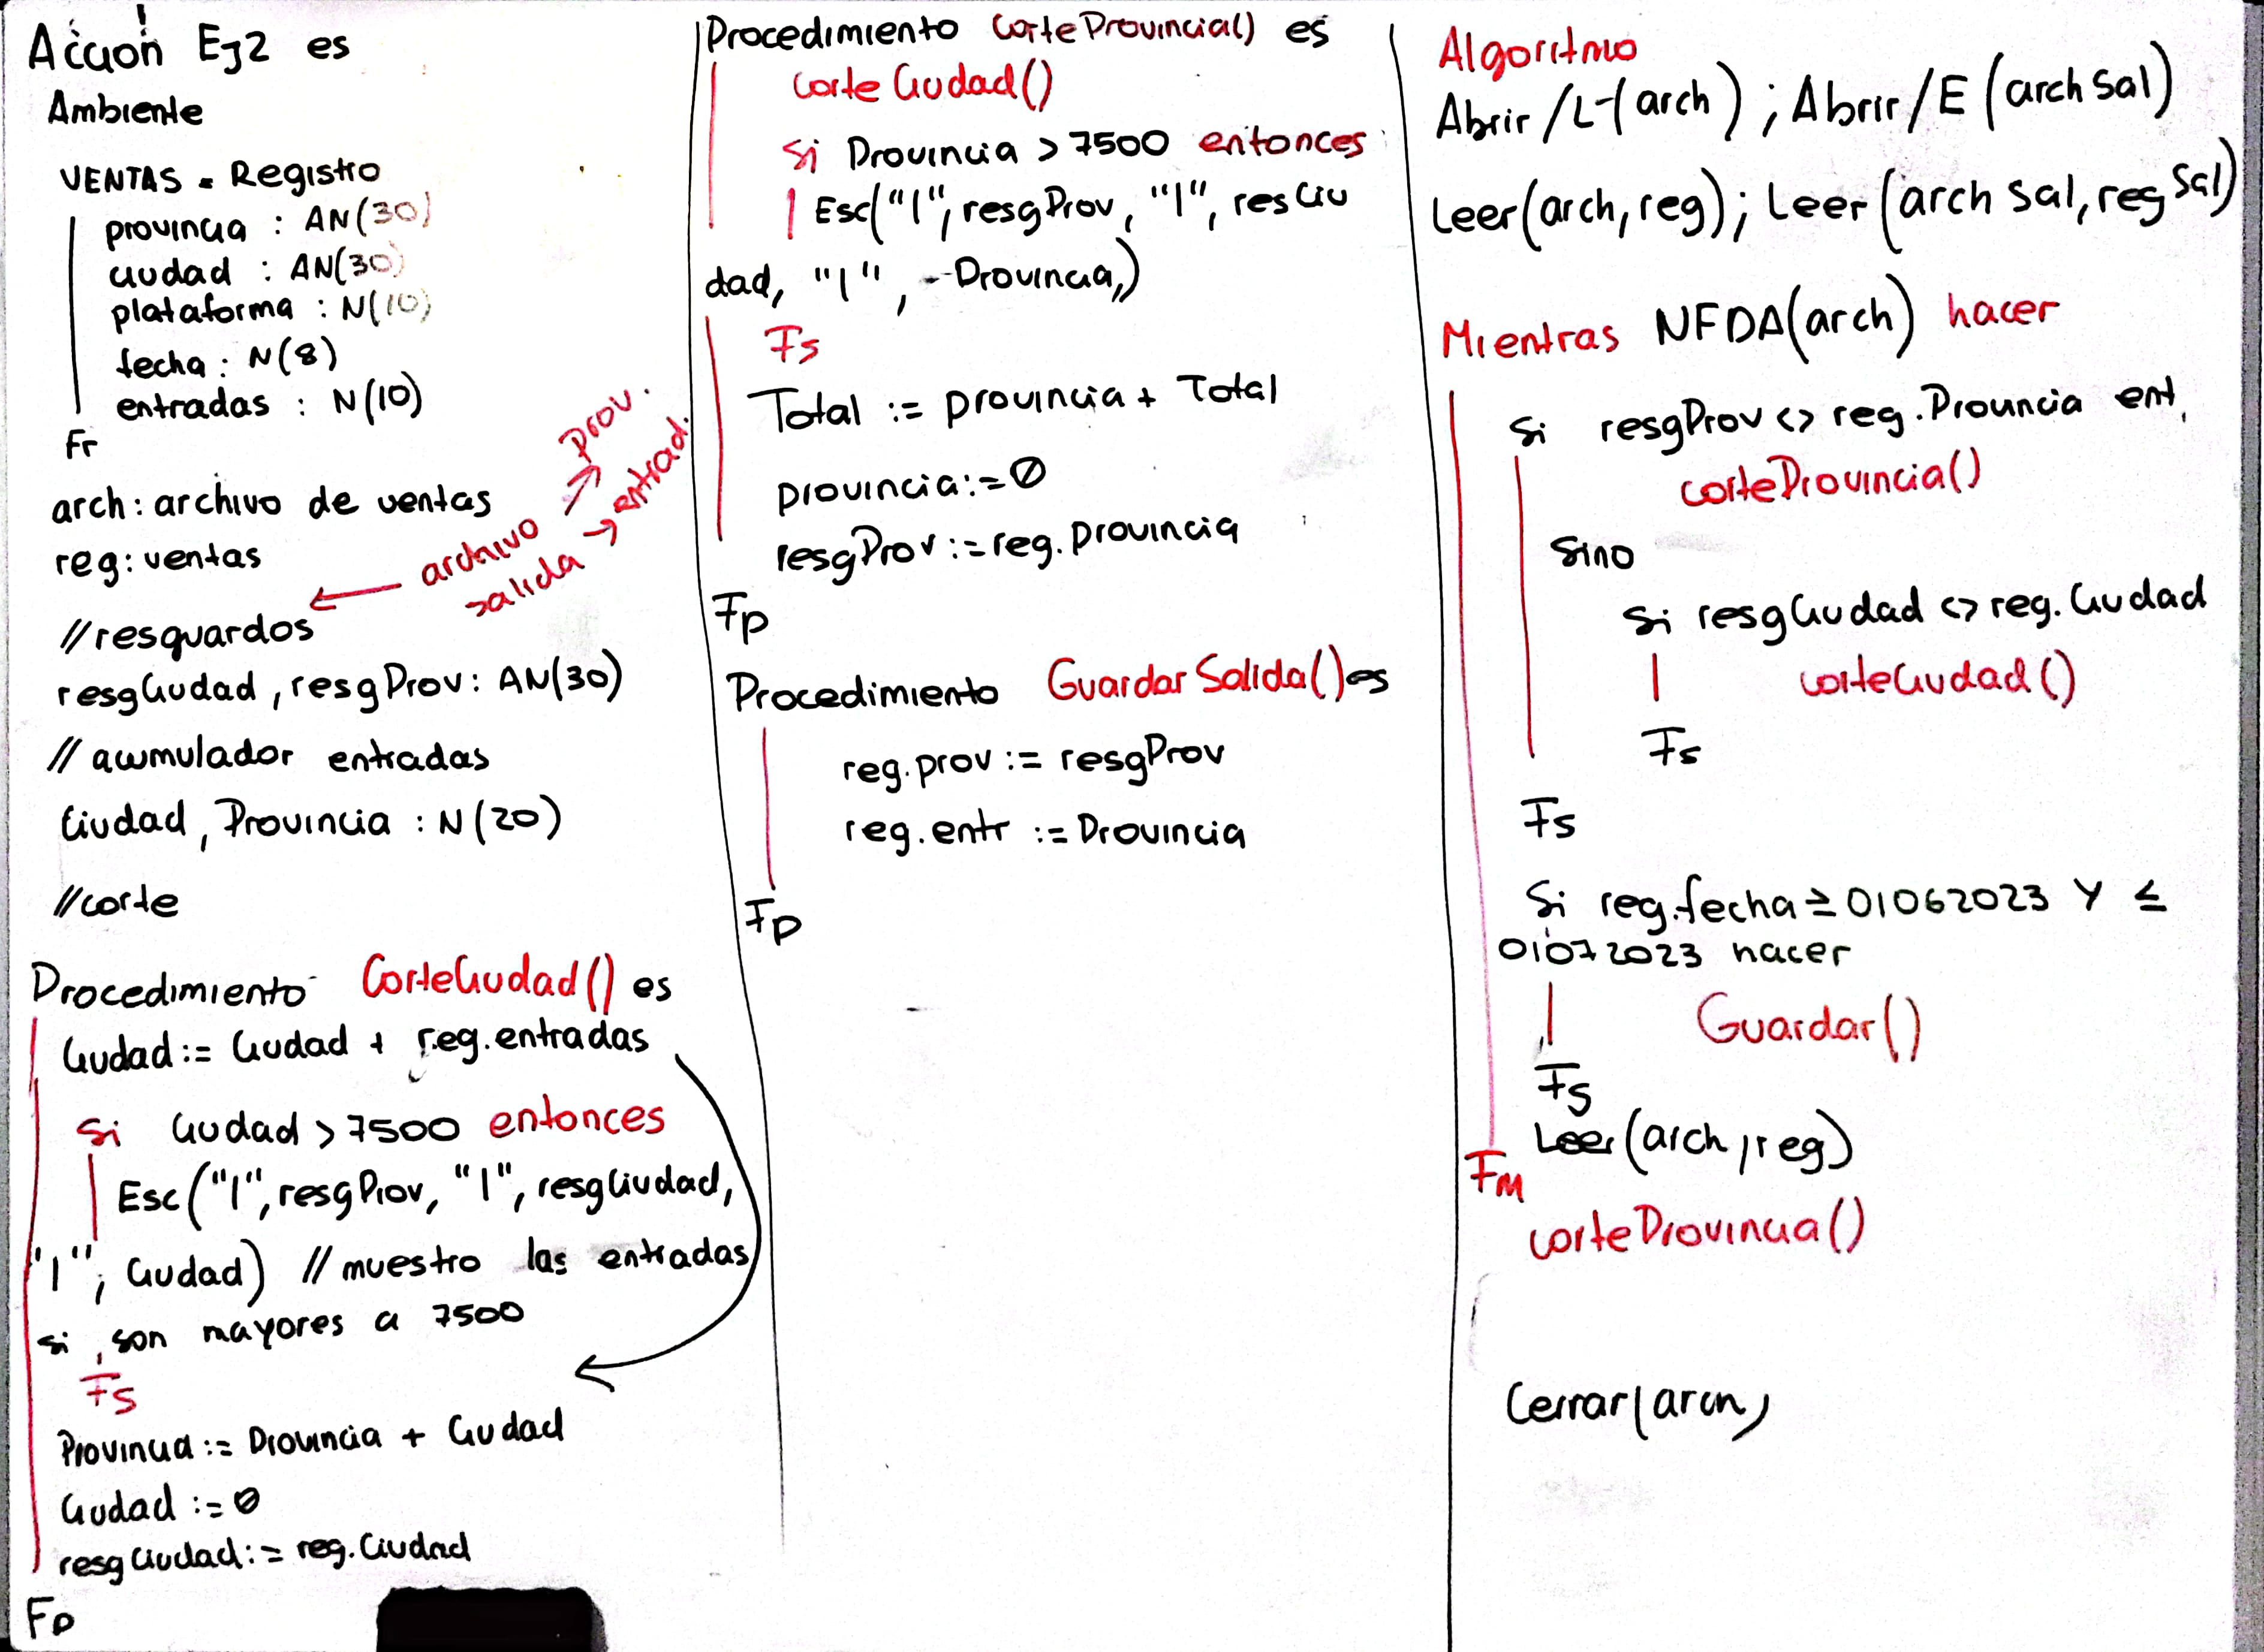 Acción Ej2 es
Ambiente
VENTAS = Registro
provincia : AN(30)
ciudad : AN(30)
plataforma : N(10)
fecha : N(8)
entradas : N(10)
Fr
arch: archivo de ventas
reg: ventas
archivo salida → prov.
→ entrad.
//resguardos
resgCiudad, resgProv: AN(30)
// acumulador entradas
Ciudad, Provincia : N(20)
//corte
Procedimiento CorteCiudad() es
Ciudad := Ciudad + reg.entradas
Si Ciudad > 7500 entonces
Esc("|", resgProv, "|", resgCiudad,
"|", Ciudad) // muestro las entradas
si son mayores a 7500
Fs
Provincia := Provincia + Ciudad
Ciudad := 0
resgCiudad := reg.Ciudad
Fp
Procedimiento CorteProvincial() es
CorteCiudad()
Si Provincia > 7500 entonces
Esc("|", resgProv, "|", resCiu
dad, "|", Provincia,)
Fs
Total := provincia + Total
provincia := 0
resgProv := reg.provincia
Fp
Procedimiento GuardarSalida() es
reg.prov := resgProv
reg.entr := Provincia
Fp
Algoritmo
Abrir /L (arch) ; Abrir /E (arch Sal)
Leer(arch, reg); Leer(arch Sal, reg Sal)
Mientras NFDA(arch) hacer
Si resgProv <> reg.Provincia ent.
corteProvincia()
Sino
Si resgCiudad <> reg.Ciudad
corteCiudad()
Fs
Fs
Si reg.fecha ≥ 01062023 Y ≤
01072023 hacer
Guardar()
Fs
Leer(arch, reg)
Fm
corteProvincia()
Cerrar(arch)